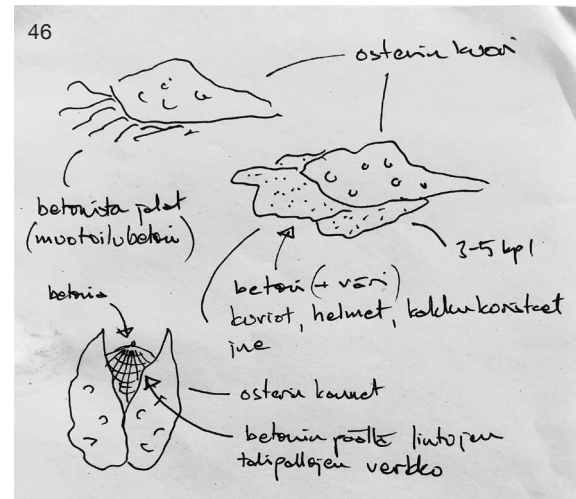 46
osterin kuori
betonista jalat
(muotoilubetoni)
3-5 kpl
betoni (+ väri)
kuviot, helmet, kakkukoristeet
jne
betonia
osterin kannet
betonin päällä lintujen
talipallojen verkko